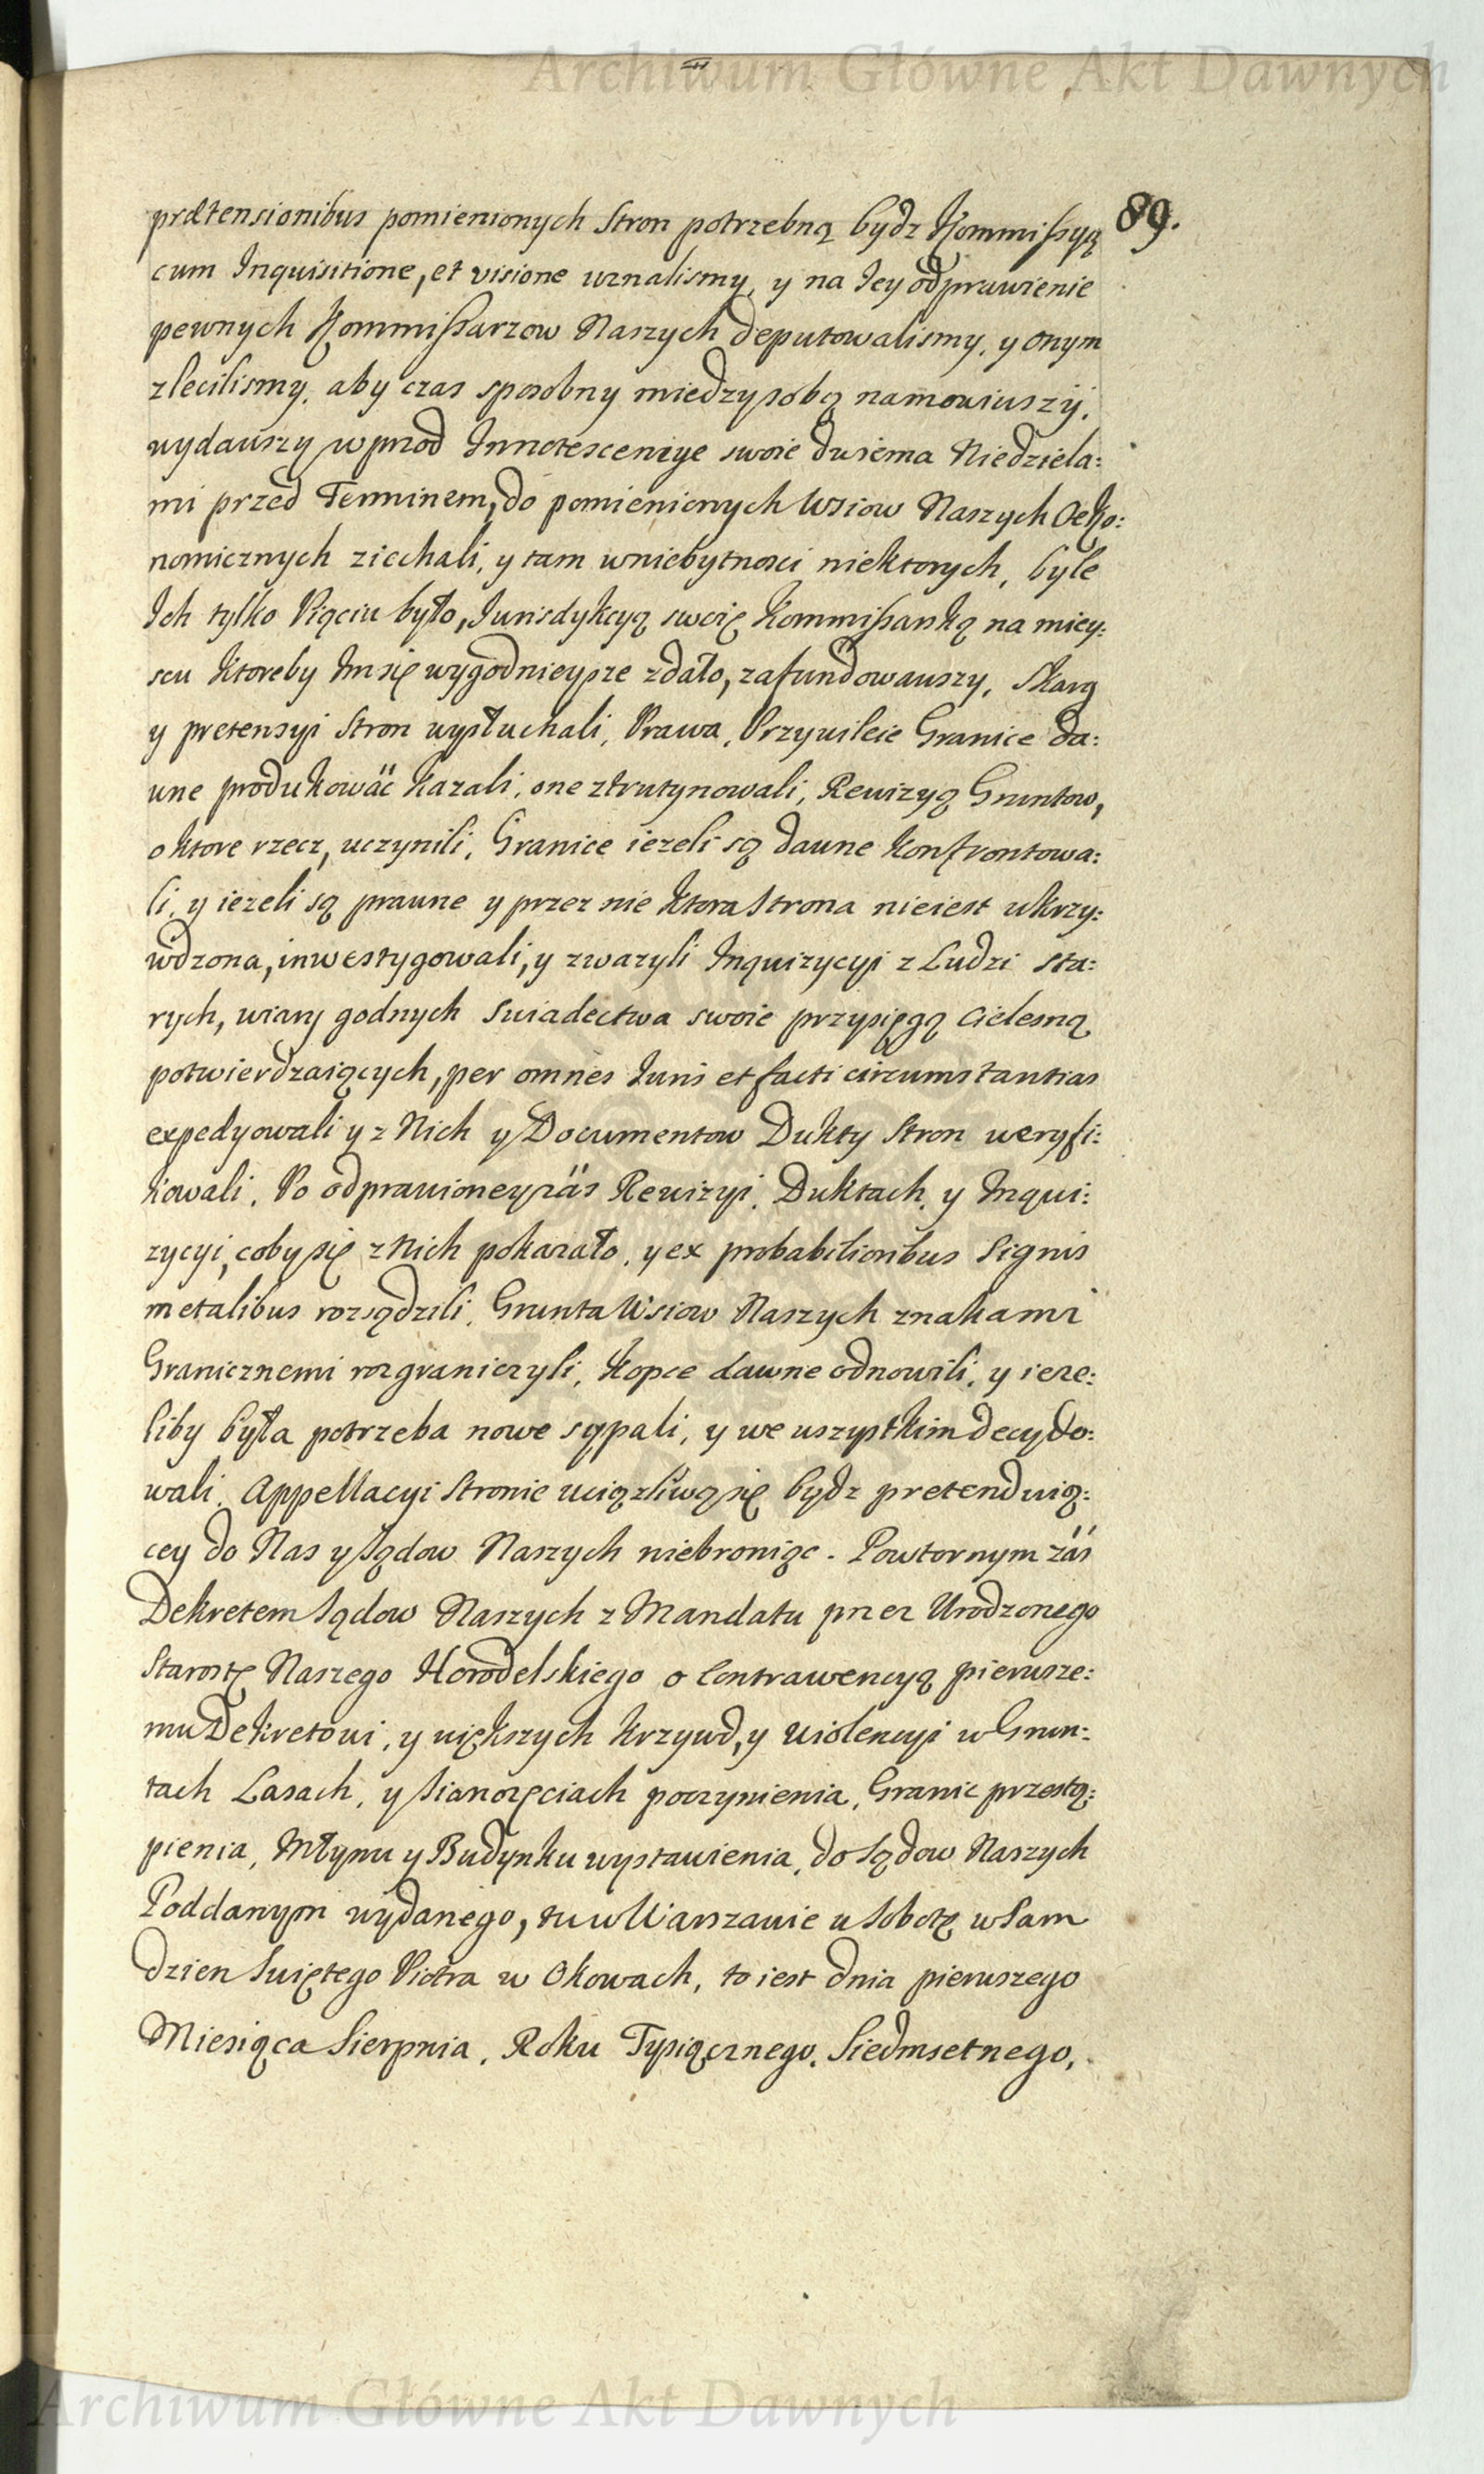 Archiwum Główne Akt Dawnych
89.
prætensionibus pomienionych Stron potrzebną bydz Kommißyą
cum Inquisitione, et visione uznalismy, y na Iey odprawienie
pewnych Kommißarzow Naszych deputowalismy, y onym
zlecilismy, aby czas sposobny miedzy sobą namowiuszy,
wydawszy wprzod Innotescencye swoie dwiema Niedziela:
mi przed Terminem, do pomienionych Wsiow Naszych Oeko:
nomicznych ziechali, y tam w niebytnosci niektorych, byle
Ich tylko Pięciu było, Iurisdykcyą swoię Kommißarską na miey:
scu ktoreby Im się wygodnieysze zdało, zafundowawszy, Skarg
y pretensyi Stron wysłuchali, Prawa, Przywileie Granice da:
wne produkowäc kazali, one ztrutynowali, Rewizyą Gruntow,
o ktore rzecz, uczynili, Granice iezeli są dawne konfrontowa:
li, y iezeli są prawne y przez nie ktora Strona nieiest ukrzy:
wdzona, inwestygowali, y zwazyli Inquizycyi z Ludzi sta:
rych, wiary godnych swiadectwa swoie przysięgą cielesną
potwierdzaiących, per omnes Iuris et facti circumstantias
expedyowali y z Nich y Documentow Dukty Stron weryfi:
kowali. Po odprawioney zäs Rewizyi, Duktach, y Inqui:
zycyi, coby się z Nich pokazało, y ex probabilioribus Signis
metalibus rozsądzili, Grunta Wsiow Naszych znakami
Granicznemi rozgraniczyli, kopce dawne odnowili, y ieze:
liby była potrzeba nowe sypali, y we wszystkim decydo:
wali. Appellacyi Stronie uciązliwą się bydz pretenduią:
cey do Nas y Sądow Naszych niebroniąc. Powtornym zäs
Dekretem Sądow Naszych z Mandatu przez Urodzonego
Starostę Naszego Horodelskiego o Contrawencyą pierwsze:
mu Dekretowi, y większych krzywd, y violencyi w Grun:
tach Lasach, y Sianozęciach poczynienia, Granic przestą:
pienia, Młynu y Budynku wystawienia, do Sądow Naszych
Poddanym wydanego, tu w Warszawie w Sobotę w Sam
dzien Swiętego Piotra w Okowach, to iest dnia pierwszego
Miesiąca Sierpnia, Roku Tysiącznego, Siedmsetnego,
Archiwum Główne Akt Dawnych